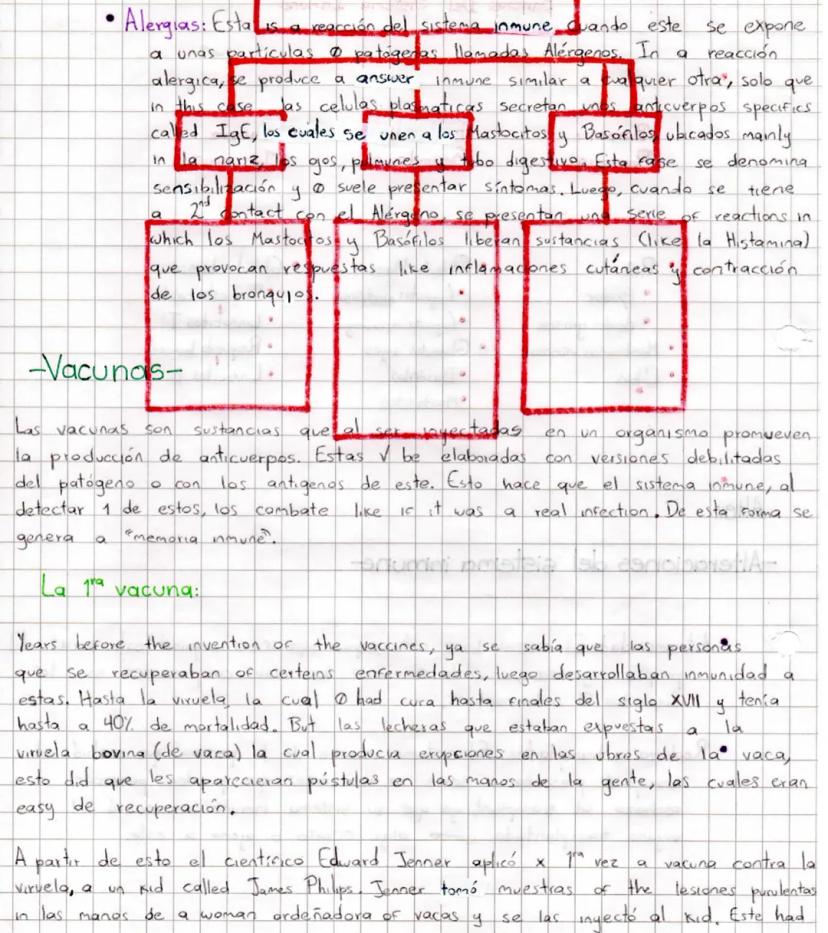 • Alergias: Esta is a reacción del sistema inmune cuando este se expone
a unas partículas Ø patógenas llamadas Alérgenos. In a reacción
alergica, se produce a answer inmune similar a cualquier otra, solo que
in this case las celulas plasmaticas secretan unos anticuerpos specifics
called IgE, los cuales se unen a los Mastocitos y Basófilos, ubicados mainly
in la nariz, los ojos, pulmunes y tubo digestivo. Esta fase se denomina
sensibilización y Ø suele presentar síntomas. Luego, cuando se tiene
a 2nd contact con el Alérgeno, se presentan una serie of reactions in
which los Mastocitos y Basófilos liberan sustancias (like la Histamina)
que provocan respuestas like inflamaciones cutáneas y contracción
de los bronquios.
-Vacunas-
Las vacunas son sustancias que al ser inyectadas en un organismo promueven
la producción de anticuerpos. Estas √ be elaboradas con versiones debilitadas
del patógeno o con los antigenos de este. Esto hace que el sistema inmune, al
detectar 1 de estos, los combate like if it was a real infection. De esta forma se
genera a "memoria inmune".
La 1ra vacuna:
Years before the invention of the vaccines, ya se sabía que las personas
que se recuperaban of certeins enfermedades, luego desarrollaban inmunidad a
estas. Hasta la viruela, la cual Ø had cura hasta finales del siglo XVII y tenía
hasta a 40% de mortalidad. But las lecheras que estaban expuestas a la
viruela bovina (de vaca) la cual producia erupciones en las ubres de la vaca,
esto did que les aparecieran pústulas en las manos de la gente, las cuales eran
easy de recuperación.
A partir de esto el científico Edward Jenner aplicó x 1ra vez a vacuna contra la
viruela, a un kid called James Philips. Jenner tomó muestras of the lesiones purulentas
in las manos de a woman ordeñadora of vacas y se las inyectó al kid. Este had